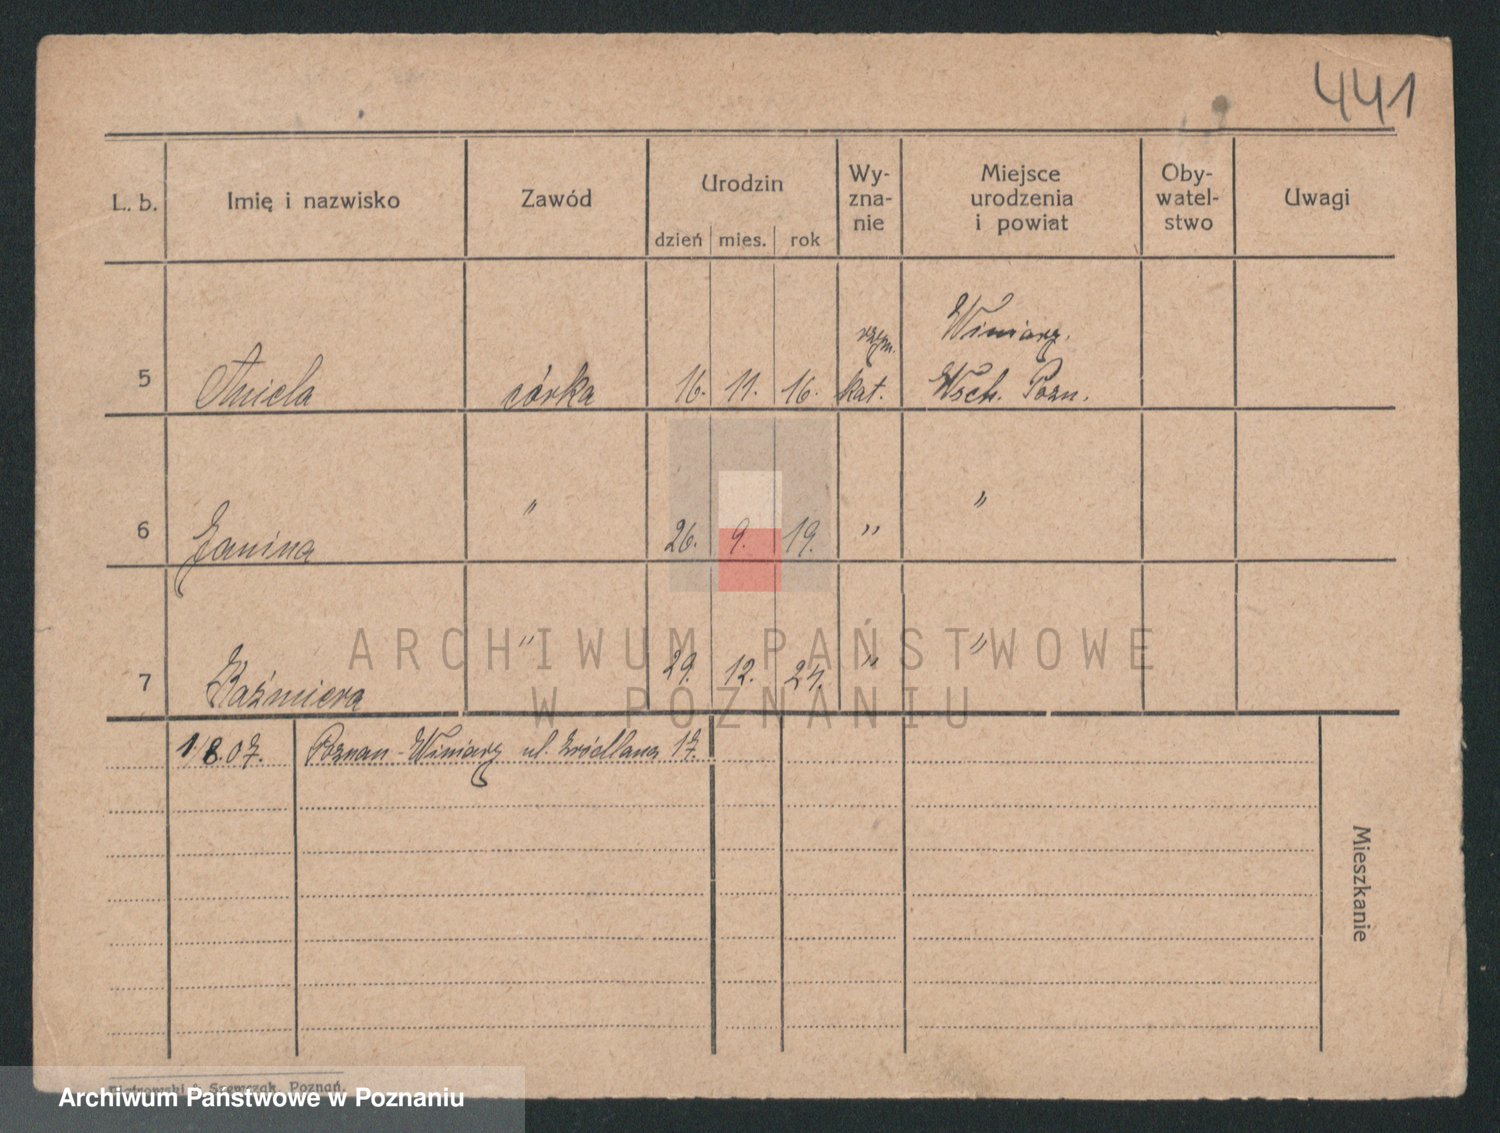 441
L. b. Imię i nazwisko Zawód Urodzin Wy-zna-nie Miejsce urodzenia i powiat Oby-watel-stwo Uwagi
dzień mies. rok
Winiary.
5 Aniela córka 16. 11. 16. rzym. kat. Wsch. Pozn.
6 Janina " 26. 9. 19. " "
7 Kaźmiera " 29. 12. 24. " "
ARCHIWUM PAŃSTWOWE
W POZNANIU
1.8.07. Poznan-Winiary ul. 17.
Mieszkanie
Piotrowski & Szewczak, Poznań.
Archiwum Państwowe w Poznaniu